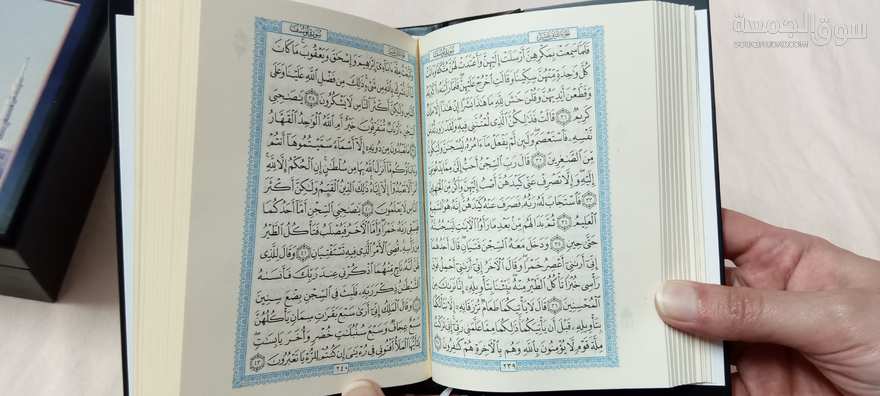 سوق الجمعة
الجزء الثاني عشر
سورة يوسف
فلما سمعت بمكرهن أرسلت إليهن وأعتدت لهن متكا وءاتت
كل وحدة منهن سكينا وقالت اخرج عليهن فلما رأينه أكبرنه
وقطعن أيديهن وقلن حش لله ما هذا بشرا إن هذا إلا ملك
كريم ٣١ قالت فذلكن الذي لمتنني فيه ولقد رودته عن
نفسه فاستعصم ولئن لم يفعل ما ءامره ليسجنن وليكونا
من الصغرين ٣٢ قال رب السجن أحب إلي مما يدعونني
إليه وإلا تصرف عني كيدهن أصب إليهن وأكن من الجهلين
٣٣ فاستجاب له ربه فصرف عنه كيدهن إنه هو السميع
العليم ٣٤ ثم بدا لهم من بعد ما رأوا الأيت ليسجننه
حتى حين ٣٥ ودخل معه السجن فتيان قال أحدهما
إني أرىني أعصر خمرا وقال الأخر إني أرىني أحمل فوق
رأسي خبزا تأكل الطير منه نبئنا بتأويله إنا نرىك من
المحسنين ٣٦ قال لا يأتيكما طعام ترزقانه إلا نبأتكما
بتأويله قبل أن يأتيكما ذلكما مما علمني ربي إني تركت
ملة قوم لا يؤمنون بالله وهم بالأخرة هم كفرون ٣٧
٢٣٩
سورة يوسف
واتبعت ملة ءاباءي إبرهيم وإسحق ويعقوب ما كان
لنا أن نشرك بالله من شيء ذلك من فضل الله علينا وعلى
الناس ولكن أكثر الناس لا يشكرون ٣٨ يصحبي
السجن ءأرباب متفرقون خير أم الله الوحد القهار
٣٩ ما تعبدون من دونه إلا أسماء سميتموها أنتم
وءاباؤكم ما أنزل الله بها من سلطن إن الحكم إلا لله
أمر ألا تعبدوا إلا إياه ذلك الدين القيم ولكن أكثر
الناس لا يعلمون ٤٠ يصحبي السجن أما أحدكما
فيسقي ربه خمرا وأما الأخر فيصلب فتأكل الطير
من رأسه قضي الأمر الذي فيه تستفتيان ٤١ وقال للذي
ظن أنه ناج منهما اذكرني عند ربك فأنسىه
الشيطن ذكر ربه فلبث في السجن بضع سنين
٤٢ وقال الملك إني أرى سبع بقرت سمان يأكلهن
سبع عجاف وسبع سنبلت خضر وأخر يابست
يأيها الملأ أفتوني في رءيي إن كنتم للرءيا تعبرون ٤٣
٢٤٠